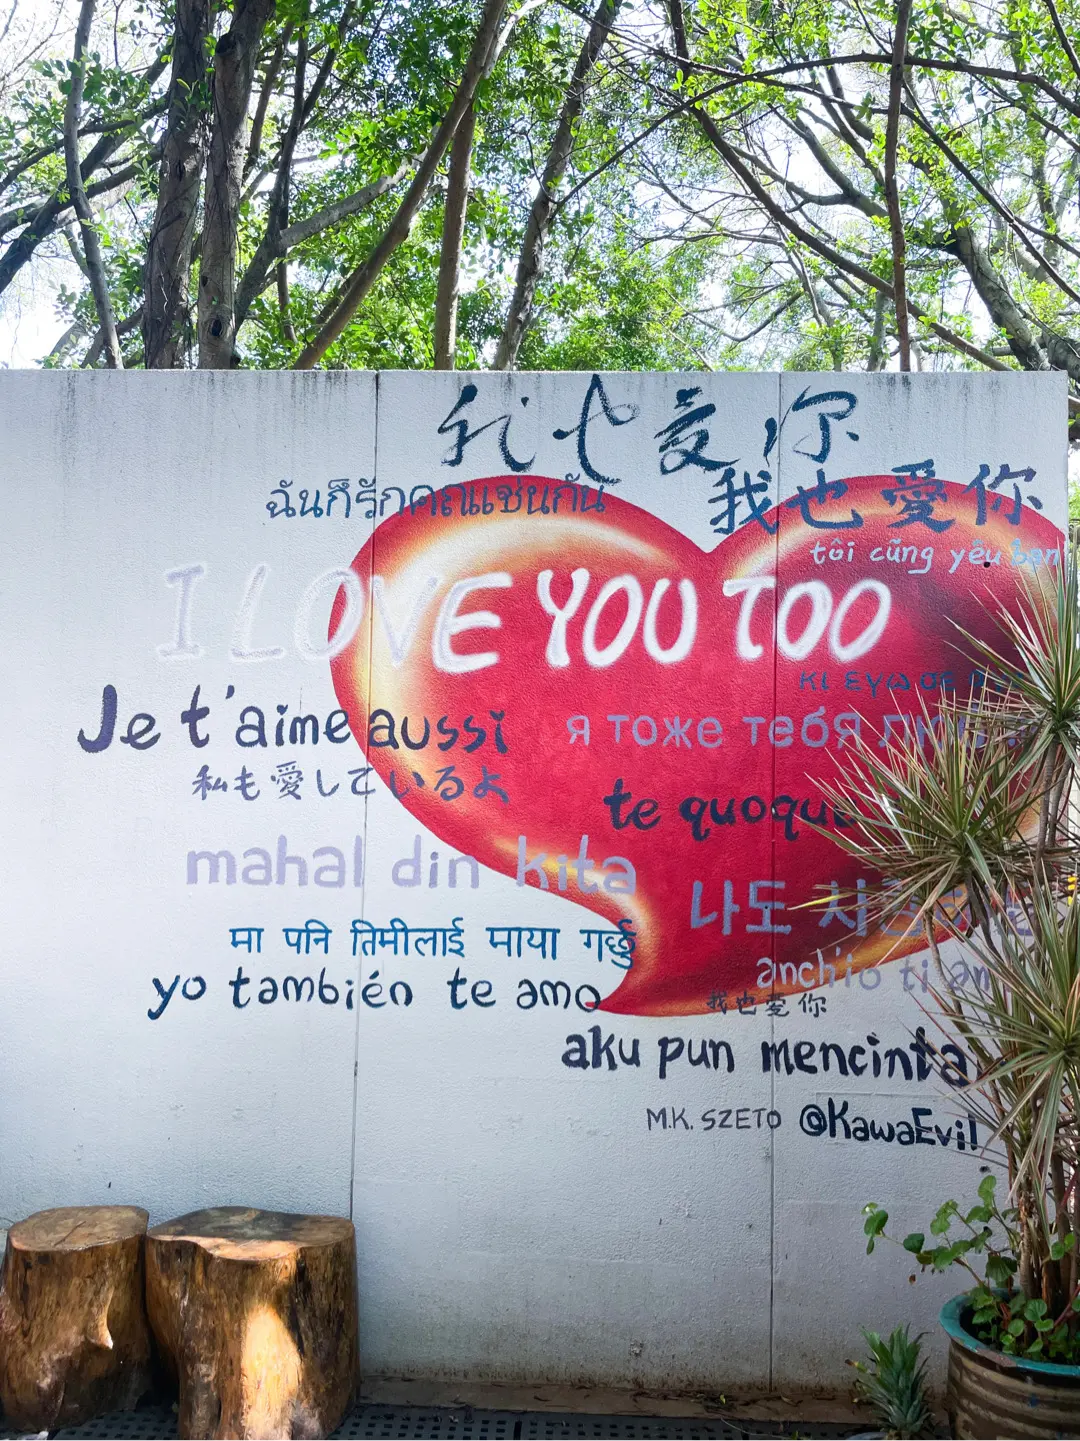 我也愛你
ฉันก็รักคุณเช่นกัน
我也愛你
tôi cũng yêu bạn
I LOVE YOU TOO
κι εγω σε
Je t'aime aussi
я тоже тебя
私も愛しているよ
te quoque
mahal din kita
나도
म पनि तिमीलाई माया गर्छु
anch'io ti am
yo también te amo
我也爱你
aku pun mencinta
M.K. SZETO @KawaEvil